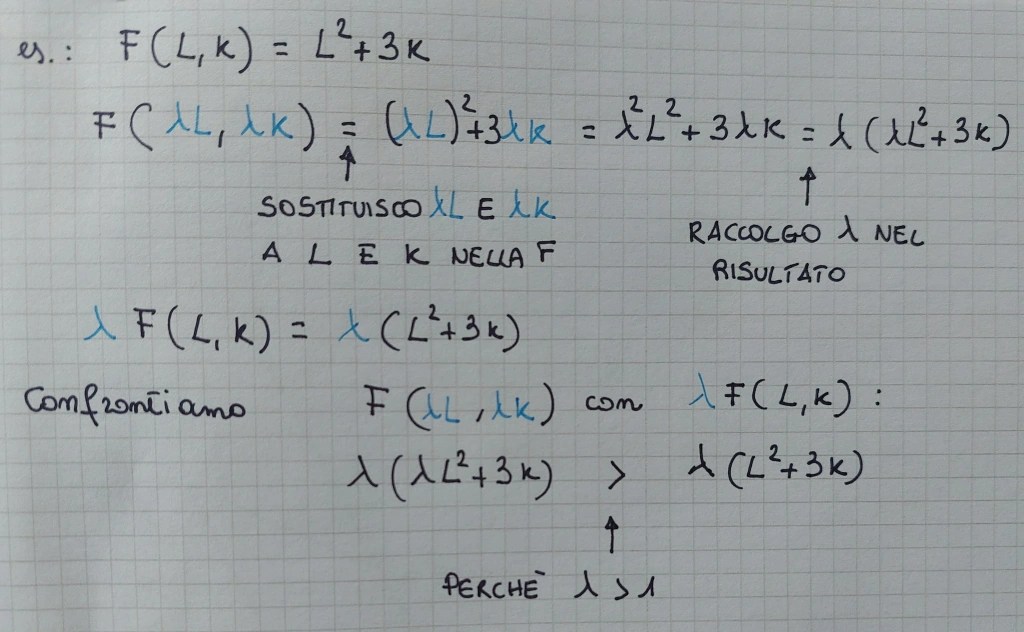 es.: F(L,K) = L²+3K
F(λL, λK) = (λL)²+3λK = λ²L²+3λK = λ(λL²+3K)
↑ ↑
SOSTITUISCO λL E λK
A L E K NELLA F
RACCOLGO λ NEL
RISULTATO
λF(L,K) = λ(L²+3K)
Confrontiamo F(λL,λK) con λF(L,K):
λ(λL²+3K) > λ(L²+3K)
↑
PERCHÈ λ>1